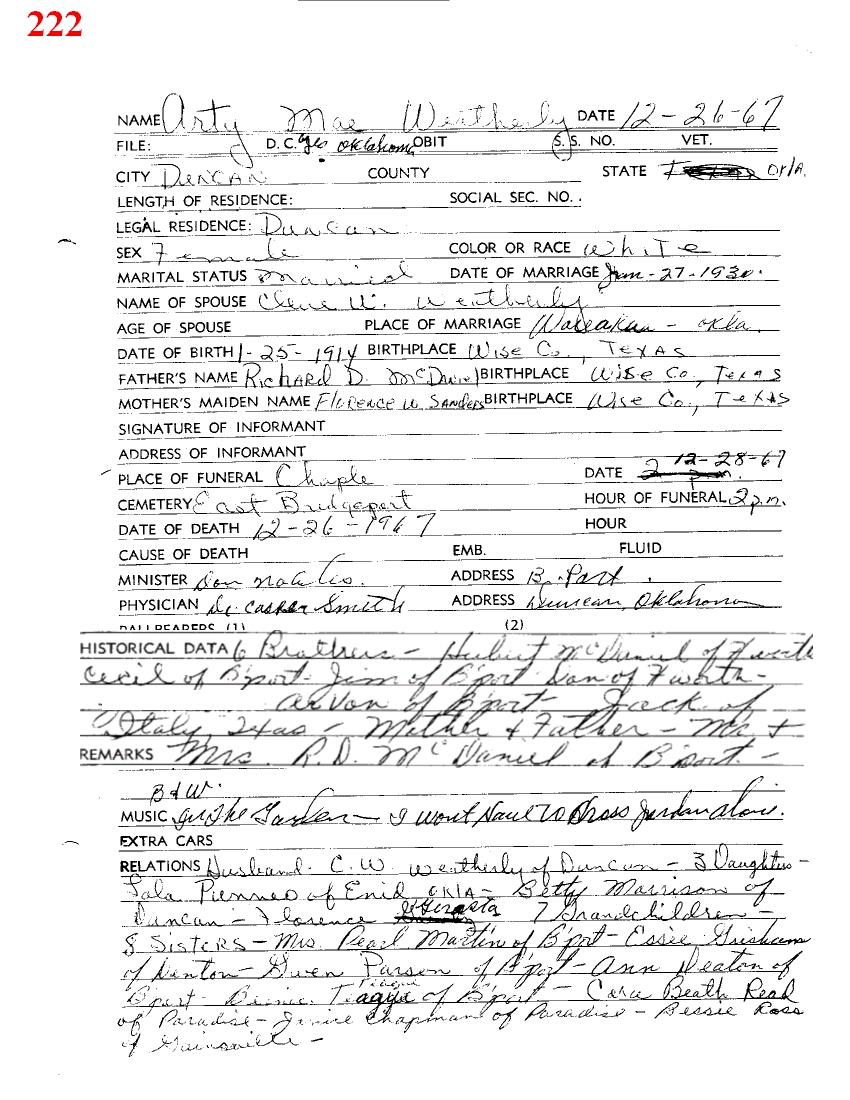 222
NAME Arty Mae Weatherly DATE 12-26-67
FILE: D.C. yes Oklahoma OBIT S.S. NO. VET.
CITY DUNCAN COUNTY STATE Okla.
LENGTH OF RESIDENCE: SOCIAL SEC. NO.
LEGAL RESIDENCE: Duncan
SEX Female COLOR OR RACE White
MARITAL STATUS Married DATE OF MARRIAGE -27-1930.
NAME OF SPOUSE W. Weatherly
AGE OF SPOUSE PLACE OF MARRIAGE - Okla.
DATE OF BIRTH 1-25-1914 BIRTHPLACE Wise Co., TEXAS
FATHER'S NAME Richard D. McDaniel BIRTHPLACE Wise Co., Texas
MOTHER'S MAIDEN NAME Florence W. Sanders BIRTHPLACE Wise Co., Texas
SIGNATURE OF INFORMANT
ADDRESS OF INFORMANT
PLACE OF FUNERAL Chaple DATE 12-28-67
CEMETERY East Bridgeport HOUR OF FUNERAL 2 p.m.
DATE OF DEATH 12-26-1967 HOUR
CAUSE OF DEATH EMB. FLUID
MINISTER Don ADDRESS B. Port.
PHYSICIAN Dr. Casper Smith ADDRESS Duncan, Oklahoma
PALLBEARERS (1) (2)
HISTORICAL DATA 6 Brothers - Hubert McDaniel of Ft worth
Cecil of B'port - Jim of B'port Don of Ft worth -
Arvon of B'port - Jack of
Italy, Texas - Mother & Father - Mr. &
REMARKS Mrs. R.D. McDaniel of B'port -
B & W.
MUSIC In The Garden - I wont Have To Cross Jordan alone.
EXTRA CARS
RELATIONS Husband - C.W. Weatherly of Duncan - 3 Daughters -
of Enid OKLA - Betty Morrison of
Duncan - Florence 7 Grandchildren -
8 SISTERS - Mrs. Pearl Martin of B'port - Essie Grisham
of Denton - Gwen Parson of B'port - Ann Deaton of
B'port - Teague of B'port - Cora Beath Read
of Paradise - Janice Chapman of Paradise - Bessie Ross
of Gainsville -